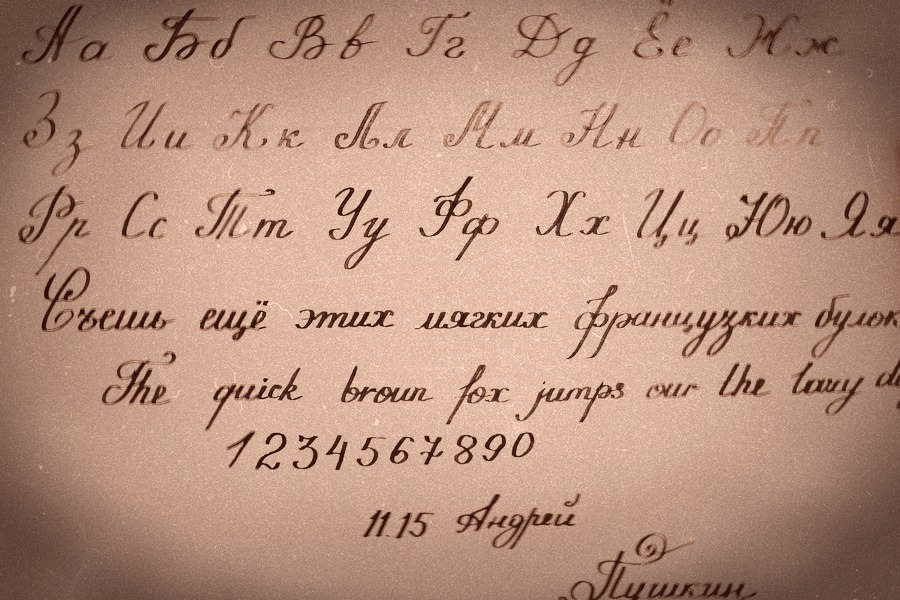 Аа Бб Вв Гг Дд Ёё Жж
Зз Ии Кк Лл Мм Нн Оо Пп
Рр Сс Тт Уу Фф Хх Цц Юю Яя
Съешь ещё этих мягких французких булок
The quick broun fox jumps our the lazy
1234567890
11.15 Андрей
Пушкин